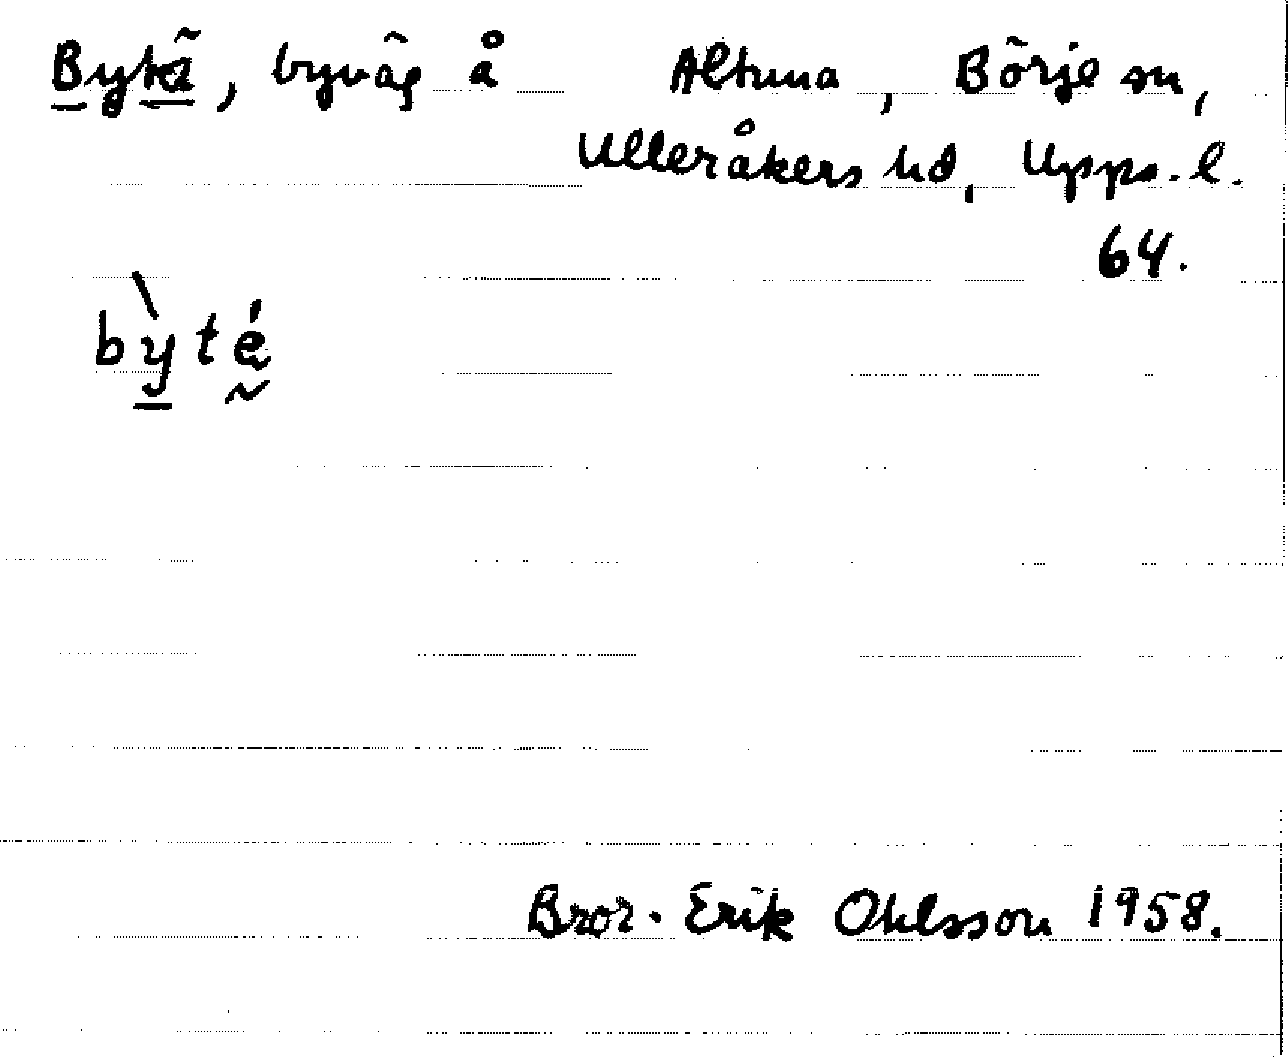 Bytä, byväg å Altuna, Börje sn,
Ulleråkers hd, Upps. l.
64.
bỳté
Bror-Erik Ohlsson 1958.